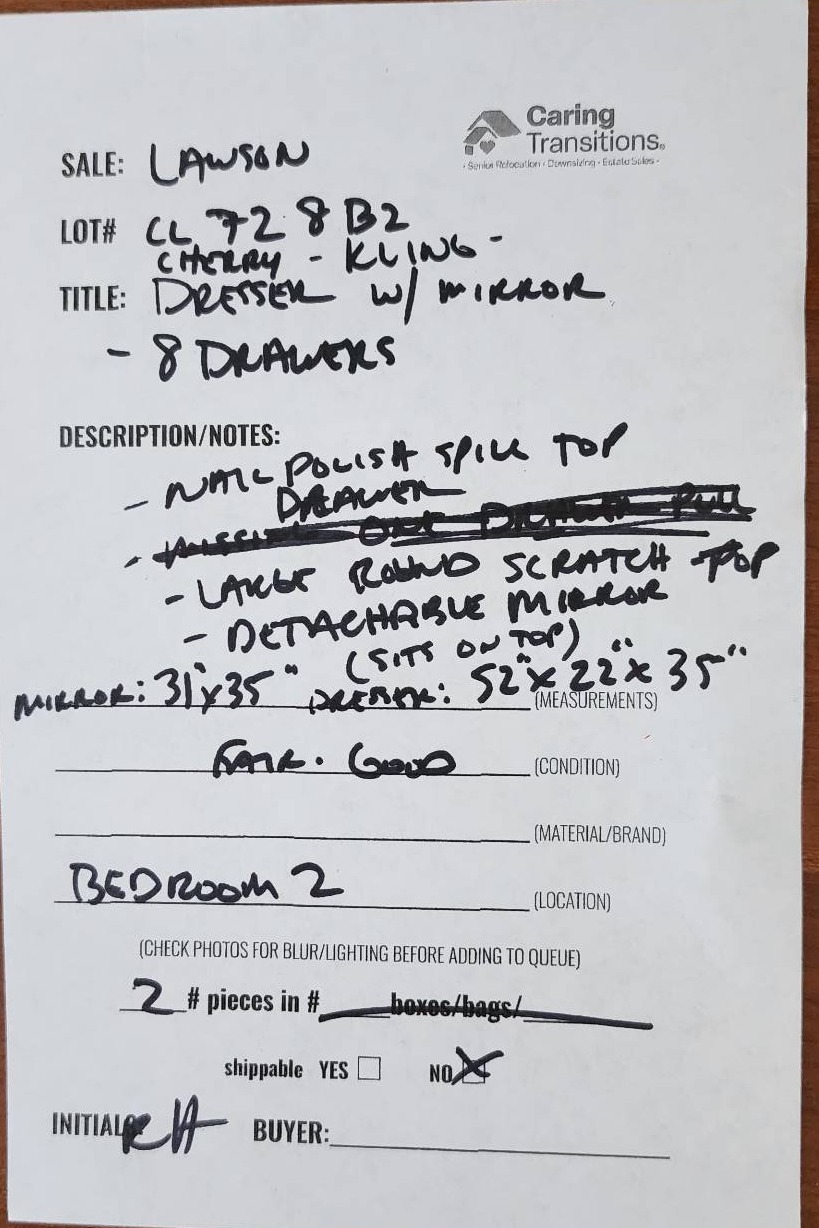 Caring
Transitions®
• Senior Relocation • Downsizing • Estate Sales •
SALE: LAWSON
LOT# CL 72 8 B2
CHERRY - KLING -
TITLE: DRESSER W/ MIRROR
- 8 DRAWERS
DESCRIPTION/NOTES:
- NAIL POLISH SPILL TOP
DRAWER
- MISSING ONE DRAWER PULL
- LARGE ROUND SCRATCH TOP
- DETACHABLE MIRROR
(SITS ON TOP)
MIRROR: 31"x35" DRESSER: 52"x22"x35" (MEASUREMENTS)
FAIR. GOOD (CONDITION)
(MATERIAL/BRAND)
BEDROOM 2 (LOCATION)
(CHECK PHOTOS FOR BLUR/LIGHTING BEFORE ADDING TO QUEUE)
2 # pieces in # boxes/bags/
shippable YES NO X
INITIALS: RH BUYER: